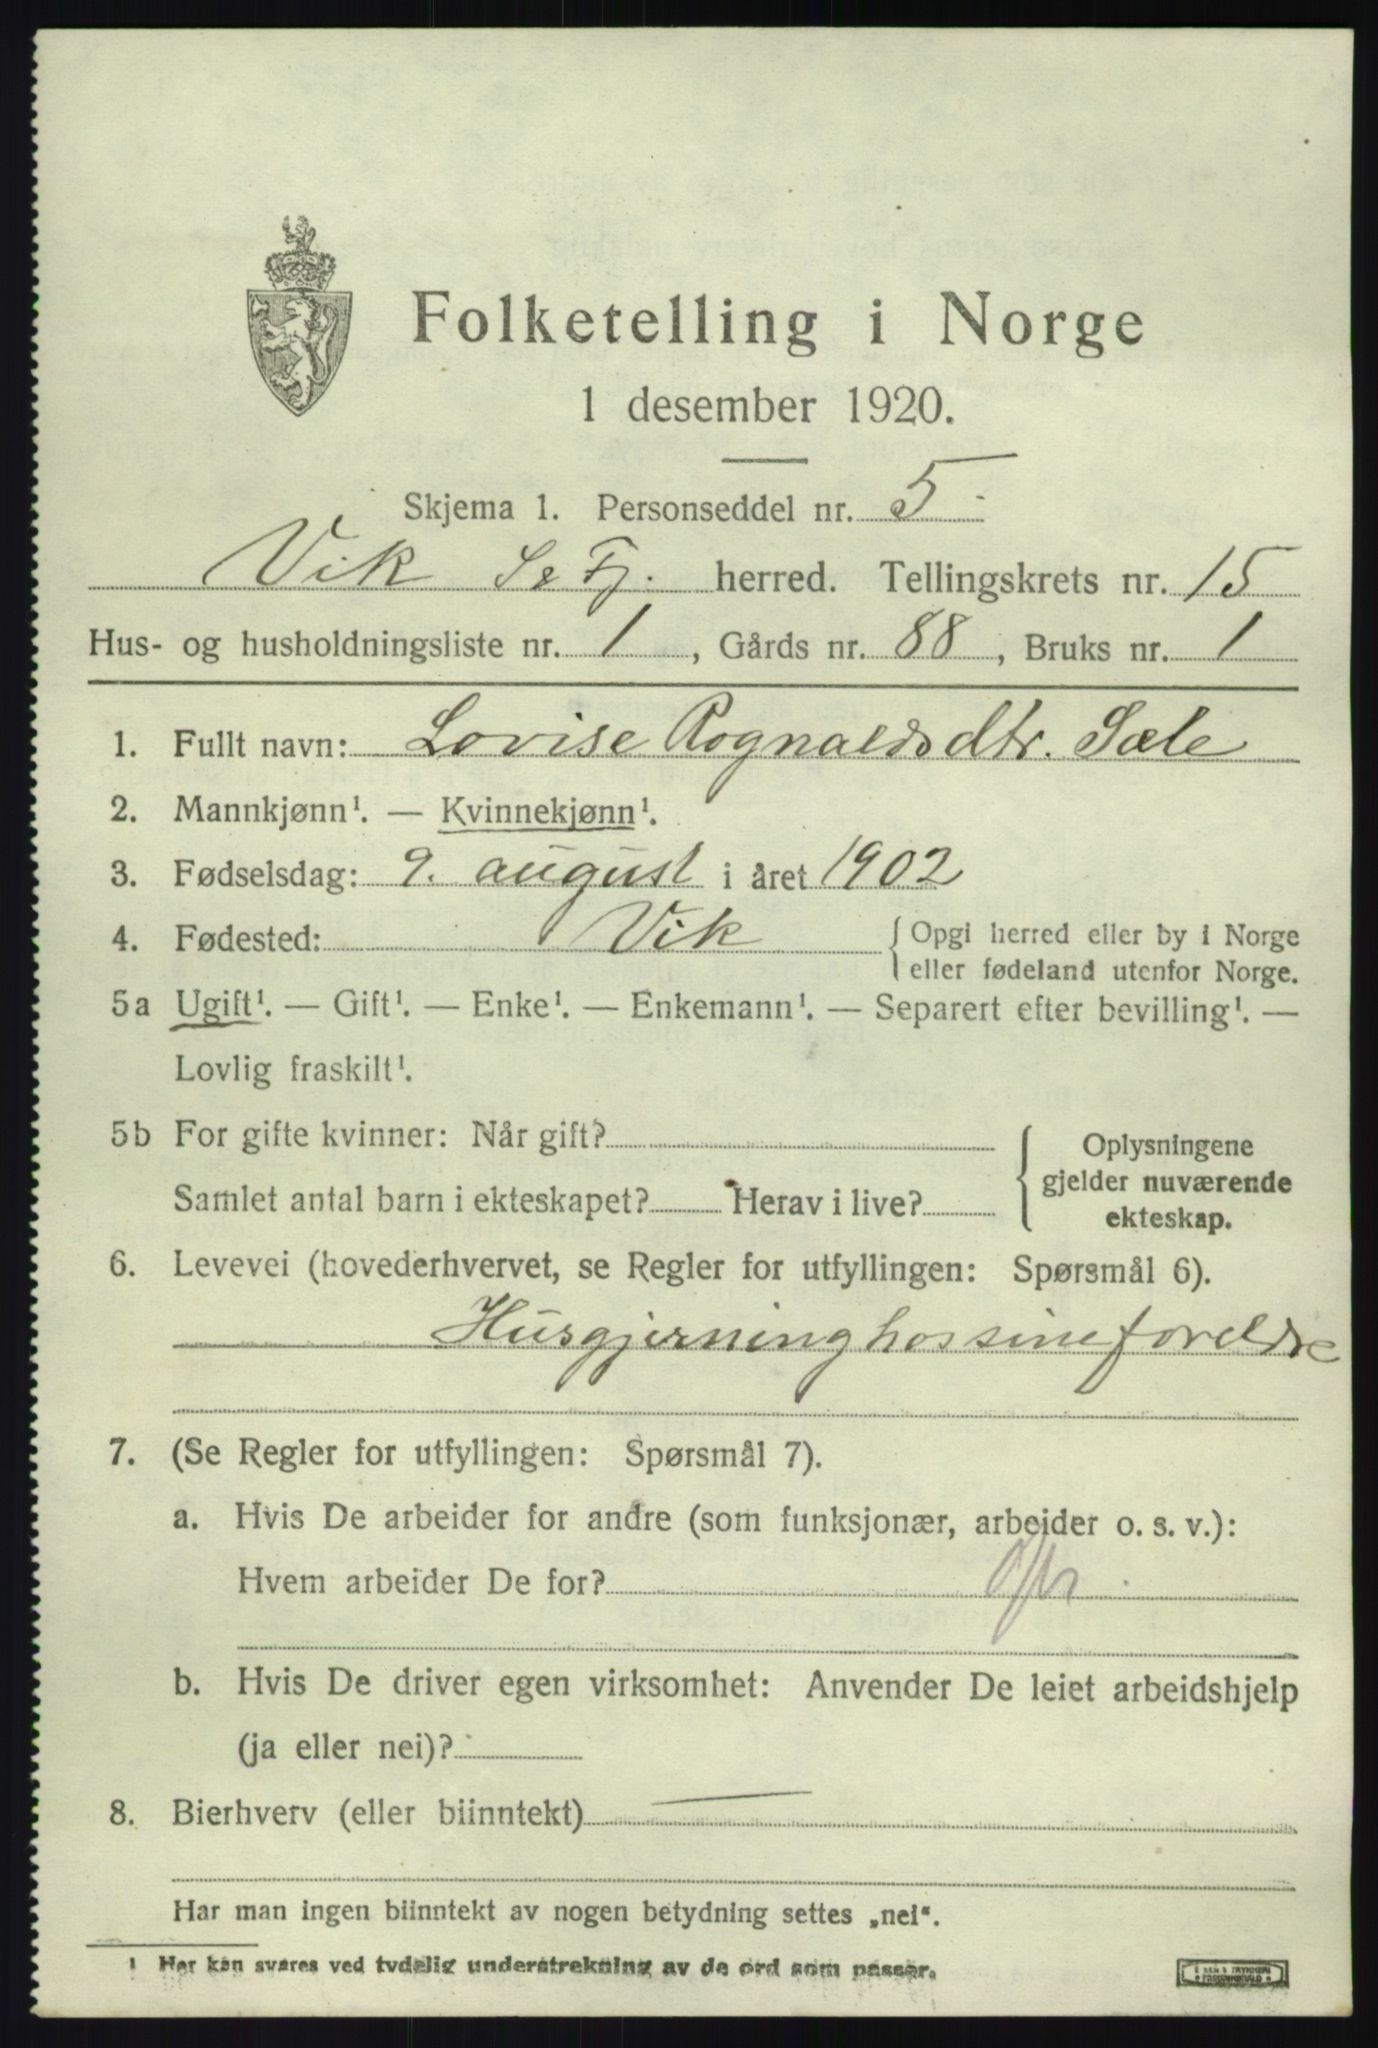 Folketelling i Norge
1 desember 1920.
Skjema 1. Personseddel nr. 5
Vik S & Fj. herred. Tellingskrets nr. 15
Hus- og husholdningsliste nr. 1, Gårds nr. 88, Bruks nr. 1
1. Fullt navn: Lovise Rognaldsdtr. Sæle
2. Mannkjønn¹. — Kvinnekjønn¹.
3. Fødselsdag: 9. august i året 1902
4. Fødested: Vik { Opgi herred eller by i Norge
eller fødeland utenfor Norge.
5a Ugift¹. — Gift¹. — Enke¹. — Enkemann¹. — Separert efter bevilling¹. —
Lovlig fraskilt¹.
5b For gifte kvinner: Når gift?
Samlet antal barn i ekteskapet? Herav i live?
{ Oplysningene
gjelder nuværende
ekteskap.
6. Levevei (hovederhvervet, se Regler for utfyllingen: Spørsmål 6).
Husgjerning hos sine foreldre
7. (Se Regler for utfyllingen: Spørsmål 7).
a. Hvis De arbeider for andre (som funksjonær, arbeider o. s. v.):
Hvem arbeider De for?
b. Hvis De driver egen virksomhet: Anvender De leiet arbeidshjelp
(ja eller nei)?
8. Bierhverv (eller biinntekt) —
Har man ingen biinntekt av nogen betydning settes „nei“.
¹ Her kan svares ved tydelig understrekning av de ord som passer.